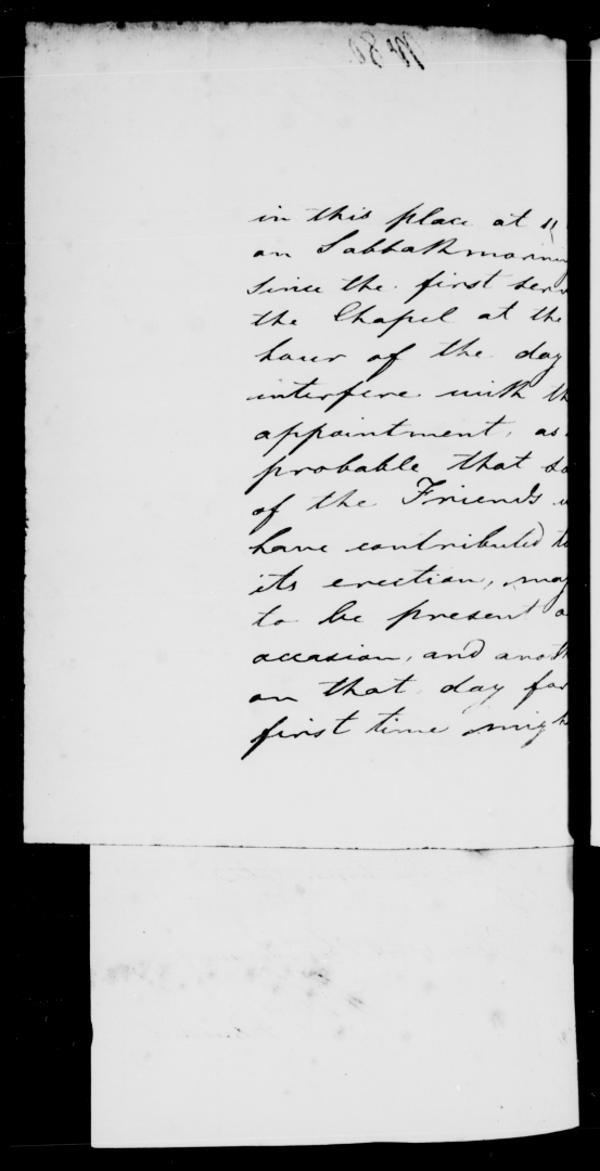 in this place at 11
on Sabbath mornin
since the first ser
the Chapel at the
hour of the day
interfere with th
appointment, as
probable that so
of the Friends
have contributed to
its erection, may
to be present o
occasion, and anoth
on that day for
first time migh